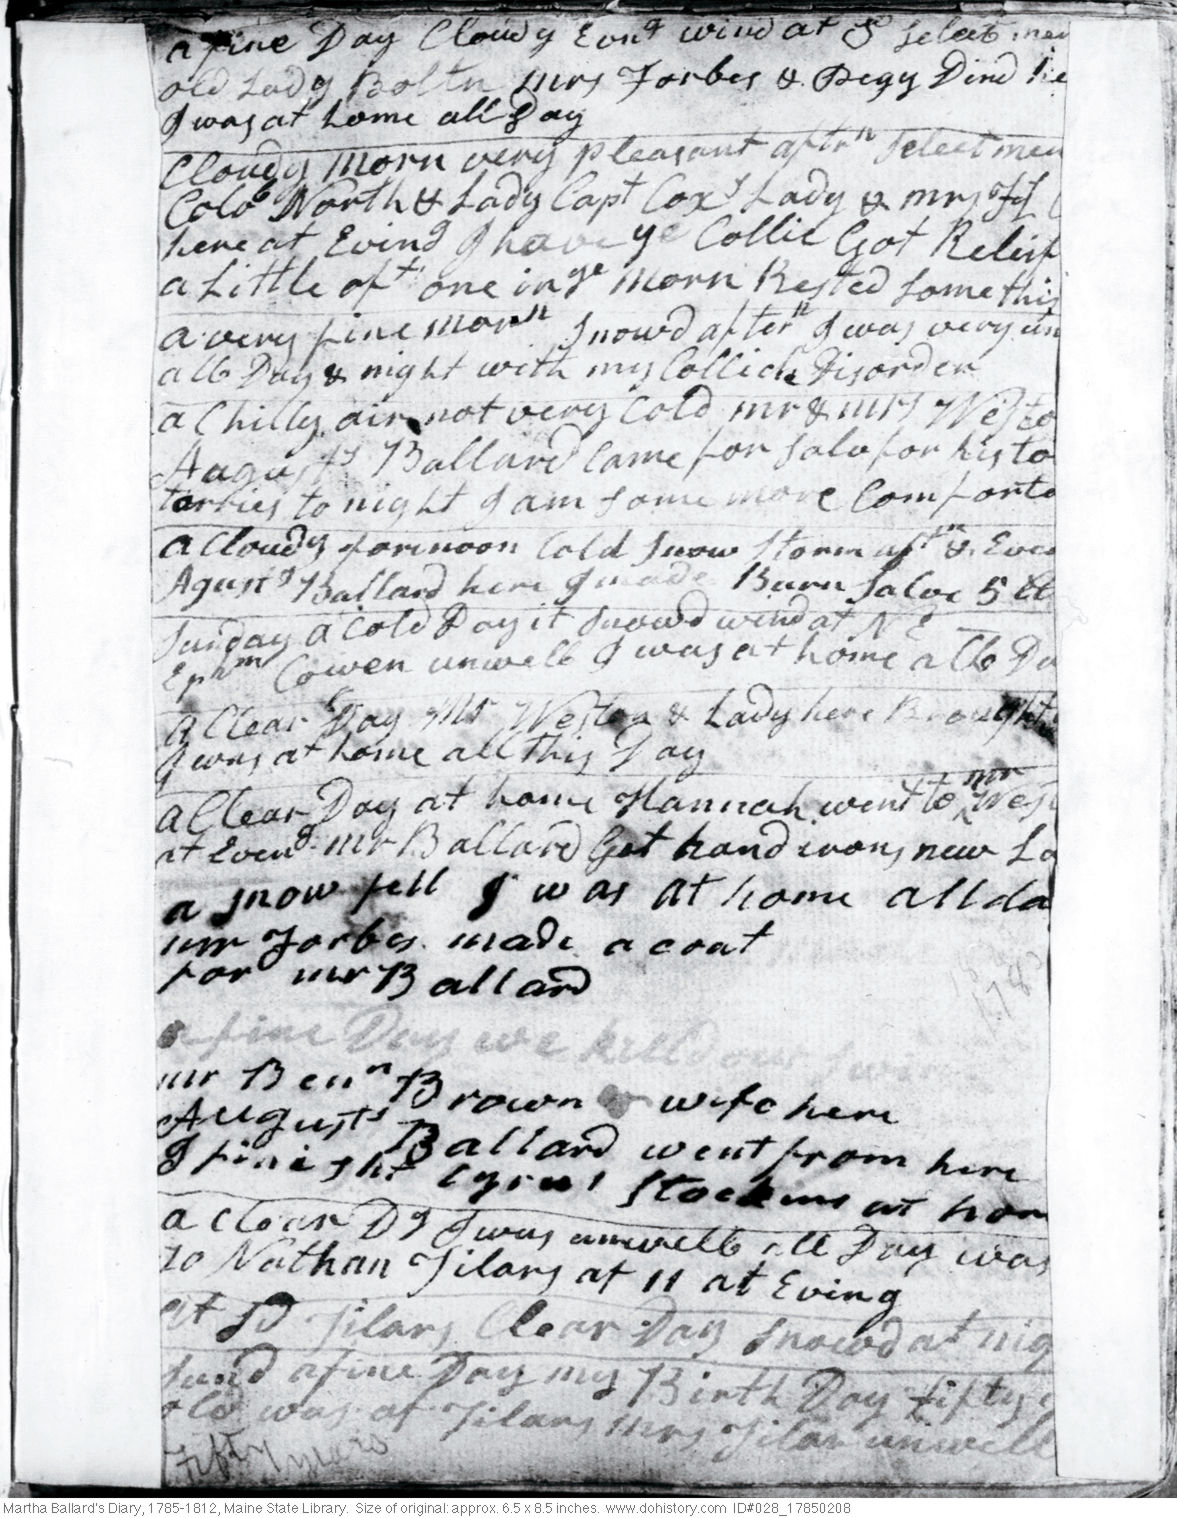 a fine Day Cloudy Evng wind at S Select men
old Lady Boltn Mrs Forbes & Pegy Dind
I was at home all Day
Cloudy Morn very pleasant aftrn Select men
Colo North & Lady Capt Cox & Lady & mrs
here at Eving I have ye Collic Got Relief
a Little oft one in ye Morn Rested some this
a very fine Morn Snowd aftern I was very un
all Day & night with my Collich Disorder
a Chilly air not very Cold mr & mrs Westo
Augusts Ballard Came for salv for his to
tarries to night I am some more Comforta
a Cloudy forinoon Cold Snow Storm aftn & Even
Agusts Ballard here I made Burn Salve 5
Sunday a Cold Day it Snowd wind at NE
Ephm Cowen unwell I was at home all Da
a Clear Day Mr Weston & Lady here Brought
I was at home all this Day
a Clear Day at home Hannah went to mr West
at Eveng mr Ballard Got hand irons new La
a snow fell I was at home all da
mr Forbes made a coat
for mr Ballard
a fine Day we killd our swine
mr Benn Brown wife here
Augusts Ballard went from here
I finisht Cyrus Stockins at hom
a clear D I was unwell all Day was
to Nathan Tilars at 11 at Eving
at Tilars Clear Day Snowd at nig
Sund a fine Day my Birth Day fifty
old was at Tilars Mrs Tilar unwell
fifty years
178
Martha Ballard's Diary, 1785-1812, Maine State Library. Size of original: approx. 6.5 x 8.5 inches. www.dohistory.com ID#028_17850208